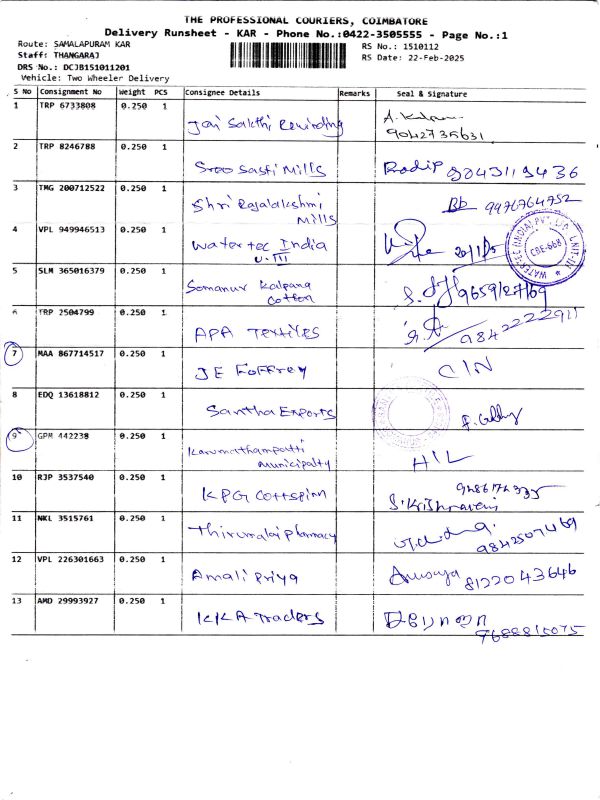 THE PROFESSIONAL COURIERS, COIMBATORE
Delivery Runsheet - KAR - Phone No.:0422-3505555 - Page No.:1
Route: SAMALAPURAM KAR
RS No.: 1510112
Staff: THANGARAJ
RS Date: 22-Feb-2025
DRS No.: DCJB151011201
Vehicle: Two Wheeler Delivery
S No Consignment No Weight PCS Consignee Details Remarks Seal & Signature
1 TRP 6733808 0.250 1 Jai Sakthi Rewinding
9042735631
2 TRP 8246788 0.250 1 Sree Sasti Mills Pradip 9043119436
3 TMG 200712522 0.250 1 Shri Rajalakshmi Mills 9976764752
4 VPL 949946513 0.250 1 Water tec India U.III
WATERTEC (INDIA) PVT. LTD. UNIT-III CBE-668
5 SLM 365016379 0.250 1 Somanur Kalpana Cotton
6 TRP 2504799 0.250 1 APA Textiles 9842222911
7 MAA 867714517 0.250 1 JE Foffrey CIN
8 EDQ 13618812 0.250 1 Santha Exports
9 GPM 442238 0.250 1 Karumathampatti Municipalty HIL
10 RJP 3537540 0.250 1 KPG Cottspinn
S.Krishnaveni
11 NKL 3515761 0.250 1 Thirumalai Pharmacy
9842507469
12 VPL 226301663 0.250 1 Amali Priya Anusuya 8122043646
13 AMD 29993927 0.250 1 KKA Traders
7688815075